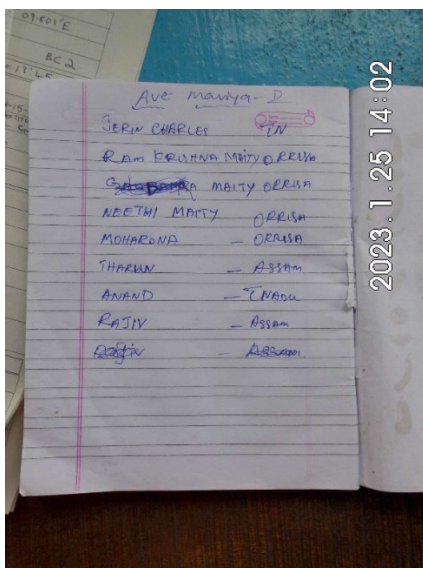 09.001'E
BC 2
Ave mariya - D
JERIN CHARLES TN
RAM KRUSHNA MAITY ORRISA
MAITY ORRISA
NEETHI MAITY ORRISA
MOHARONA - ORRISA
THARUN - ASSAM
ANAND - TNADU
RAJIV - ASSAM
Rajiv - Assam
2023.1.25 14:02